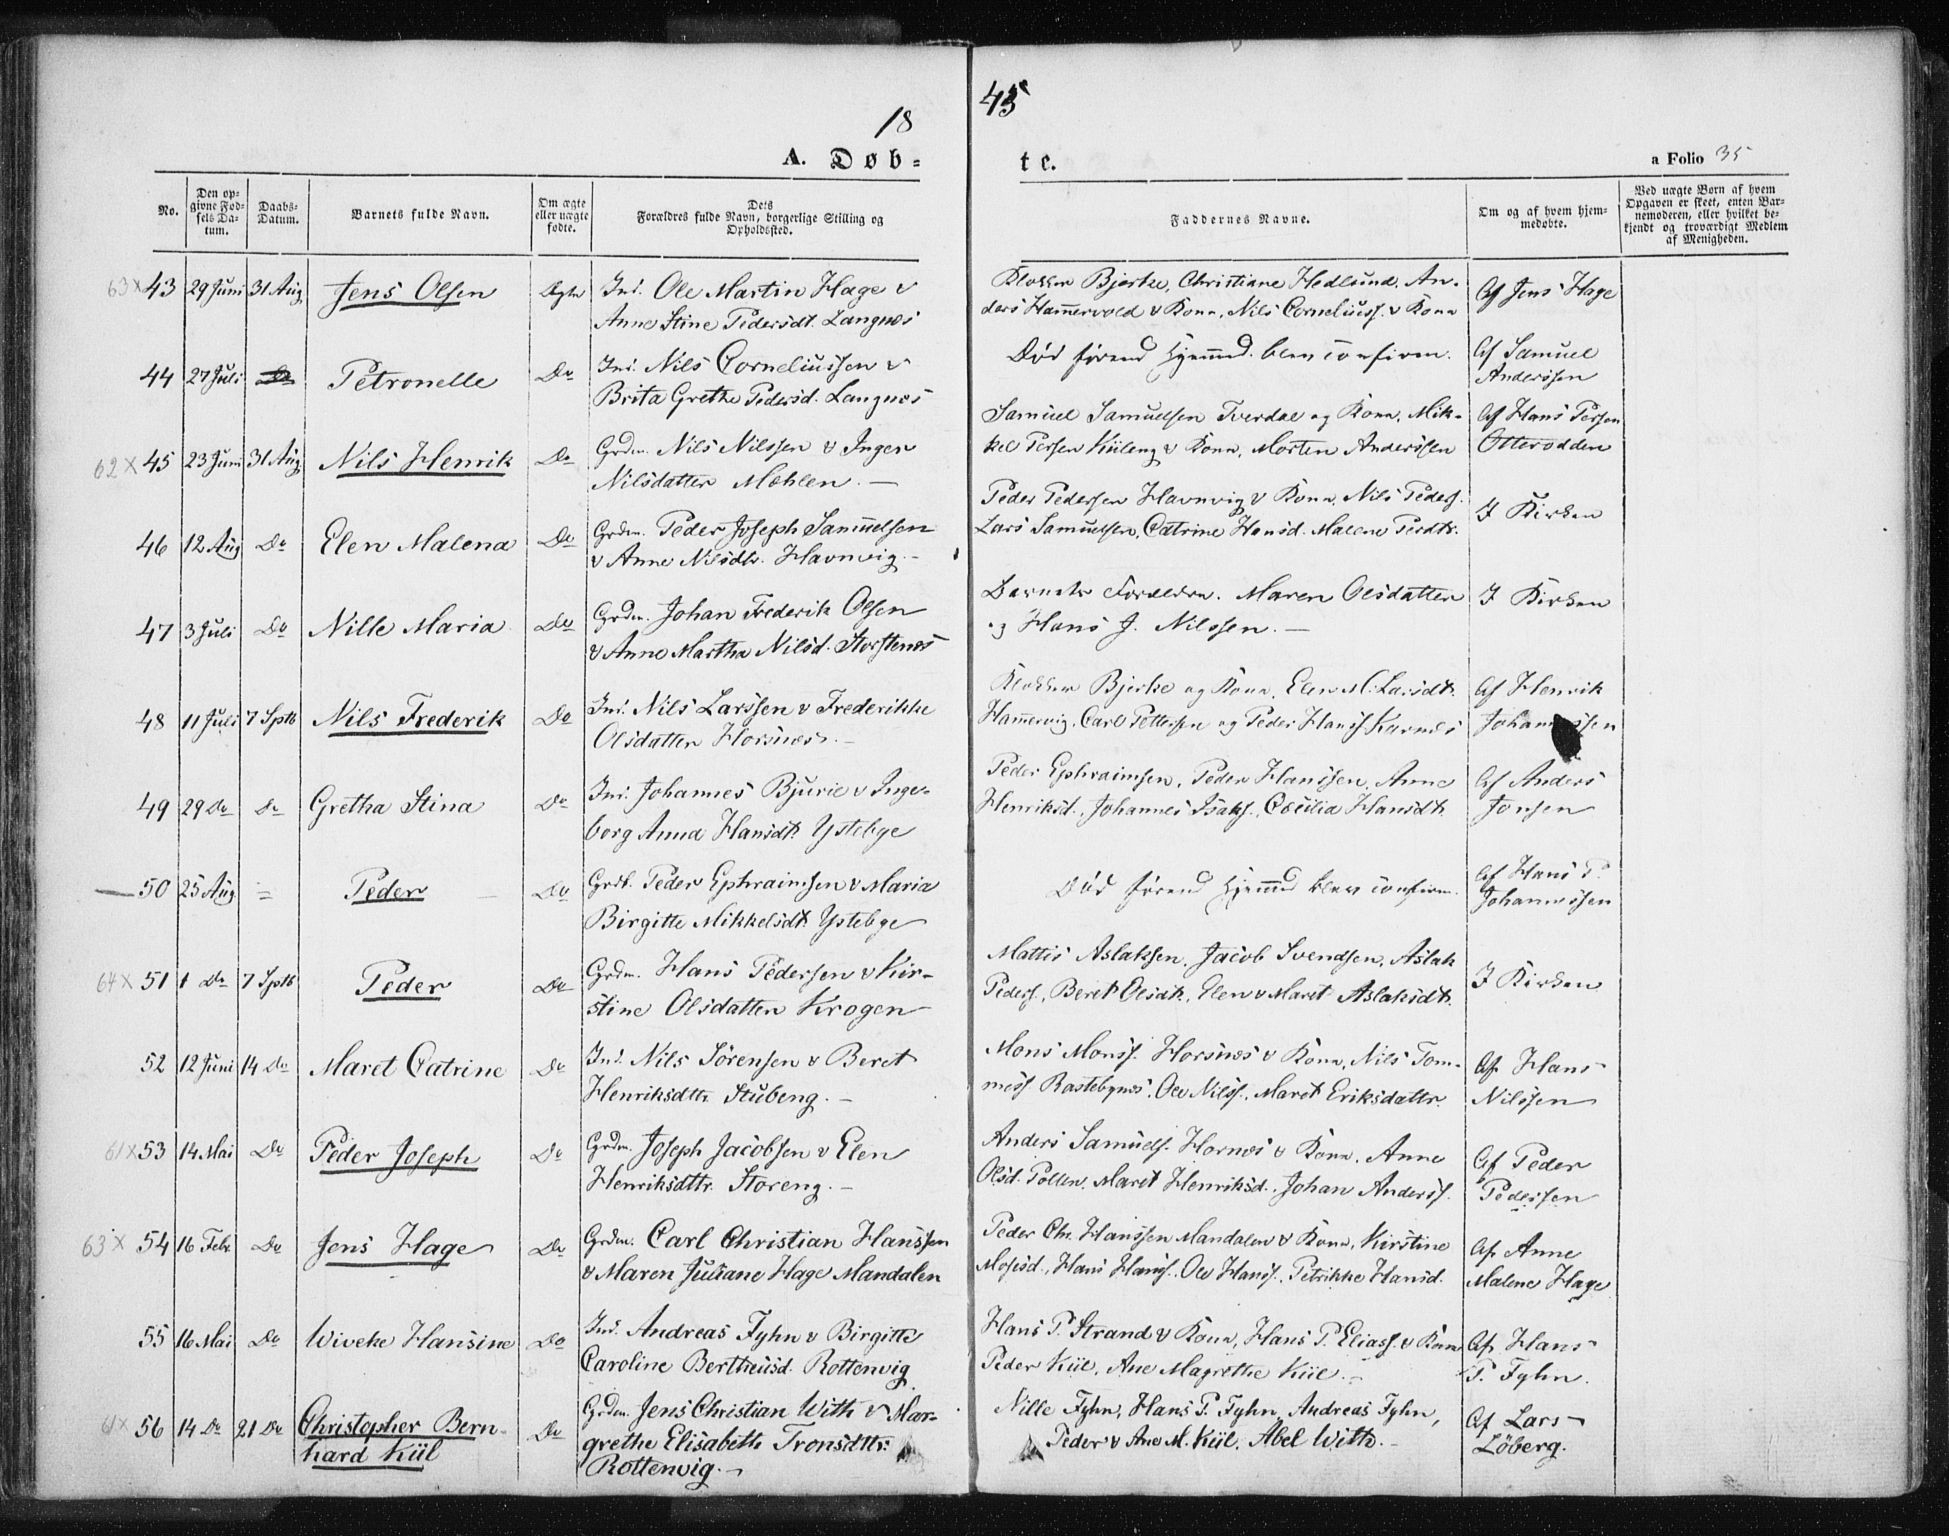 18 45
A. Døb= te. a Folio 35
No. | Den opgivne Fødsels Datum. | Daabs-Datum. | Barnets fulde Navn. | Om ægte eller uægte fødte. | Dets Forældres fulde Navn, borgerlige Stilling og Opholdssted. | Faddernes Navne. | Om og af hvem hjemmedøbte. | Ved uægte Børn af hvem Opgaven er skeet, enten Barnemoderen, eller hvilket bekjendt og troværdigt Medlem af Menigheden.
63 x 43 | 29 Juni | 31 Aug | Jens Olsen | Ægte | Ind. Ole Martin Hage &
Anne Stine Pedersdt. Langnæs | Klokker Bjerke, Christiane Hedlund, An-
ders Hamervold & Kone, Nils Corneliuss. & Kone | Af Jens Hage
44 | 27 Juli | Do | Petronelle | Do | Ind. Nils Corneliussen &
Brita Grethe Pedersd. Langnæs | Død førend Hjemmed. blev confirm. | Af Samuel
Anderssen
62 x 45 | 23 Juni | 31 Aug | Nils Henrik | Do | Grdm. Nils Nilssen & Inger
Nilsdatter Mælen. — | Samuel Samuelsen Tverdal og Kone, Mik-
kel Persen Kileng & Kone, Morten Anderssen | Af Hans Persen
Otterodden
46 | 12 Aug | Do | Elen Malena | Do | Grdm. Peder Joseph Samuelsen
& Anne Nilsdtr. Havnvig. - | Peder Pedersen Havnvig & Kone, Nils Peders.
Lars Samuelsen, Catrine Hansd. Malene Persdtr. | I Kirken
47 | 3 Juli | Do | Nille Maria | Do | Grdm. Johan Frederik Olsen
& Anne Martha Nilsd. Storstenæs | Barnets Forældre. Maren Olsdatter
og Hans J. Nilssen. — | I Kirken
48 | 11 Juli | 7 Sptb | Nils Frederik | Do | Ind. Nils Larssen & Frederikke
Olsdatter Horsnæs. — | Klokker Bjerke og Kone, Elen M. Larsdt.
Hamervig, Carl Pettersen og Peder Hanss. Karnæs | Af Henrik
Johannessen
49 | 29 Do | Do | Gretha Stina | Do | Ind. Johannes Bjurie & Inge-
borg Anna Hansdt. Ystebye | Peder Ephraimsen, Peder Hanssen, Anne
Henriksd., Johannes Isaks., Cecilia Hansdt. | Af Anders
Jonsen
— 50 | 25 Aug. | = | Peder | Do | Grdb. Peder Ephraimsen & Maria
Birgitte Mikkelsdt. Ystebye | Død førend Hjemmed blev confirm. | Af Hans P.
Johannessen
64 x 51 | 1 Do | 7 Sptb | Peder | Do | Grdm. Hans Pedersen & Kir-
stine Olsdatter Krogen | Mattis Aslaksen, Jacob Svendsen, Aslak
Peders., Beret Olsdt., Elen & Maret Aslaksdt. | I Kirken
52 | 12 Juni | 14 Do | Maret Catrine | Do | Ind. Nils Sörensen & Beret
Henriksdttr. Stubeng. — | Mons Monss. Horsnæs & Kone, Nils Tom-
mess Rastebynæs, Ole Nilss., Maret Eriksdattr. | Af Hans
Nilssen
61 x 53 | 14 Mai | Do | Peder Joseph | Do | Grdm. Joseph Jacobsen & Elen
Henriksdttr. Storeng. — | Anders Samuels. Hornæs & Kone, Anne
Olsd. Pollen, Maret Henriksd., Johan Anderss. | Af Peder
Pedersen
63 x 54 | 16 Febr. | Do | Jens Hage | Do | Grdm. Carl Christian Hanssen
& Maren Juliane Hage Mandalen | Peder Chr. Hanssen Mandalen & Kone, Kirstine
Mosisd., Hans Hanss., Ole Hanss., Petrikke Hansd. | Af Anne
Malene Hage
55 | 16 Mai | Do | Wiveke Hansine | Do | Ind. Andreas Fyhn & Birgitte
Caroline Bertheusd. Rottenvig | Hans P. Strand & Kone, Hans P. Eliass. & Kone
Peder Kiil, Ane Magrethe Kiil. — | Af Hans
P. Fyhn.
61 x 56 | 14 Do | 21 Do | Christopher Bern-
hard Kiil | Do | Grdm. Jens Christian With & Mar-
grethe Elisabeth Tronsdttr.
Rottenvig. — | Nille Fyhn, Hans P. Fyhn, Andreas Fyhn,
Peder & Ane M. Kiil, Abel With. — | Af Lars
Löberg.